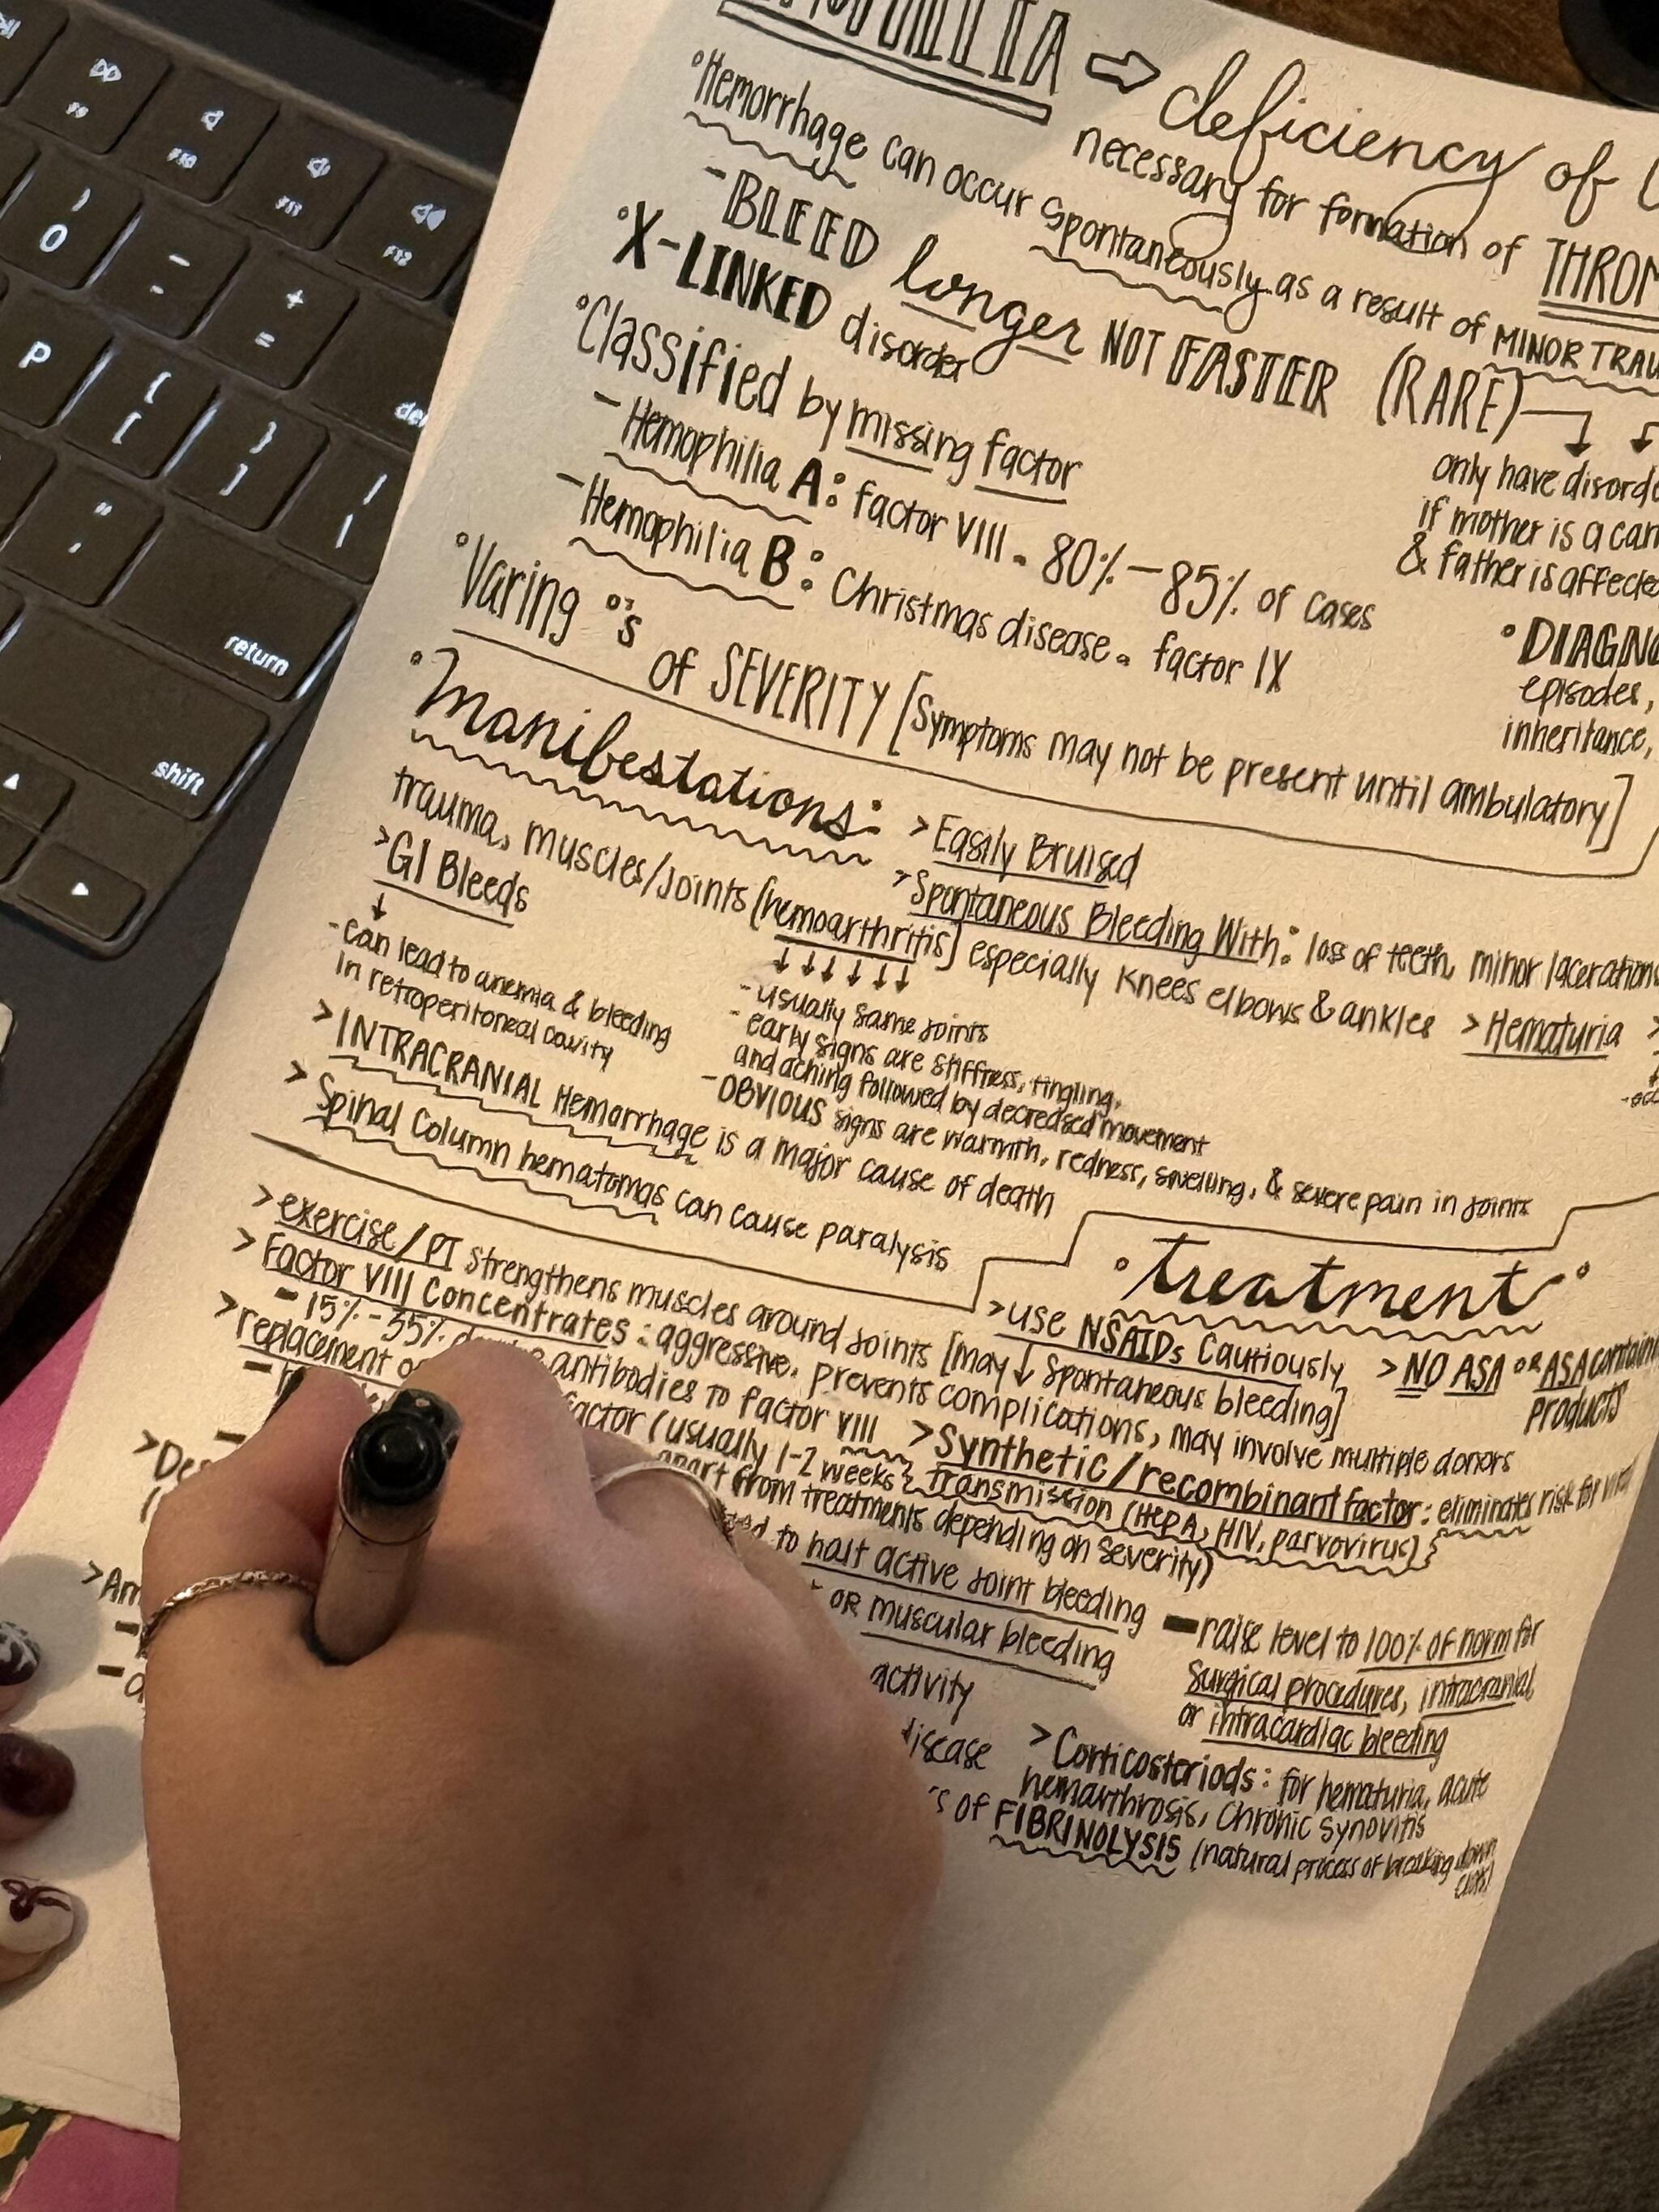 F9
F10
F11
F12
)
0
-
+
=
P
{
[
}
]
"
'
return
shift
⇨ deficiency of
necessary for formation of
°Hemorrhage can occur spontaneously as a result of MINOR
-BLEED longer NOT FASTER (RARE)
°X-LINKED disorder
only have
if mother is a
& father is
°Classified by missing factor
-Hemophilia A: factor VIII - 80%-85% of cases
-Hemophilia B: Christmas disease - factor IX
episodes,
inheritance,
°Varing °'s of SEVERITY [Symptoms may not be present until ambulatory]
°Manifestations: >Easily Bruised
>Spontaneous Bleeding With: loss of teeth, minor lacerations
trauma, muscles/joints (hemoarthritis] especially knees elbows & ankles >Hematuria
>GI Bleeds
↓
-can lead to anemia & bleeding
in retroperitoneal cavity
↓↓↓↓↓↓
-usually same joints
-early signs are stiffness, tingling,
and aching followed by decreased movement
-OBVIOUS signs are warmth, redness, swelling, & severe pain in joints
>INTRACRANIAL Hemorrhage is a major cause of death
>Spinal Column hematomas can cause paralysis
°Treatment°
>use NSAIDs Cautiously >NO ASA OR ASA
products
>exercise/PT strengthens muscles around joints [may ↓ spontaneous bleeding]
>Factor VIII Concentrates: aggressive, prevents complications, may involve multiple donors
-15%-35% antibodies to factor VIII
>Synthetic/recombinant factor: eliminates risk for
transmission (Hep A, HIV, parvovirus)
>replacement
factor (usually 1-2 weeks
apart from treatments depending on severity)
to halt active joint bleeding
OR muscular bleeding
-raise level to 100% of norm for
surgical procedures, intracranial
or intracardiac bleeding
activity
>Corticosteriods: for hematuria, acute
hemarthrosis, chronic synovitis
of FIBRINOLYSIS (natural process of breaking down
clots)